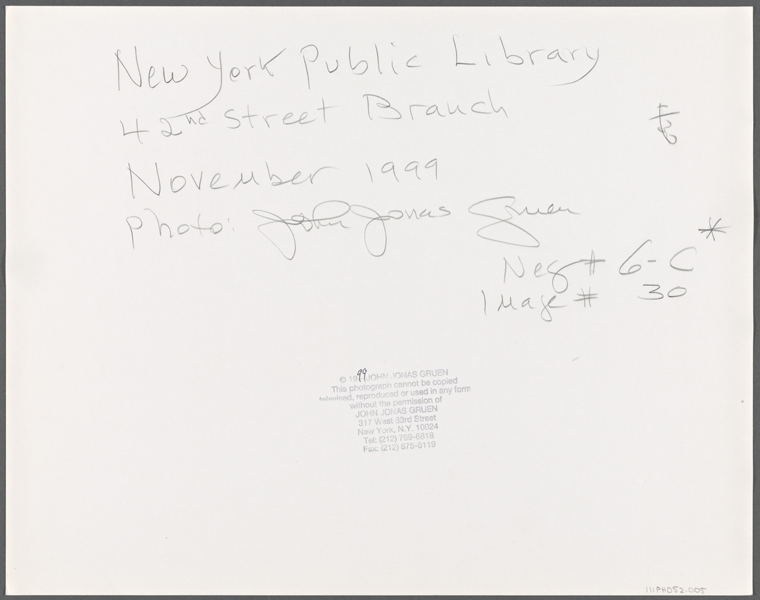 New York Public Library
42nd Street Branch
November 1999
Photo: John Jonas Gruen
*
Neg # 6-C
Image # 30
© 1999 JOHN JONAS GRUEN
This photograph cannot be copied
televised, reproduced or used in any form
without the permission of
JOHN JONAS GRUEN
317 West 83rd Street
New York, N.Y. 10024
Tel: (212)
Fax: (212)